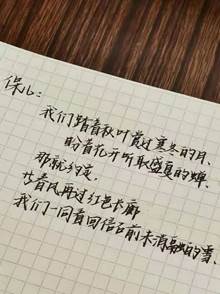 保儿：
我们踏着秋叶赏过寒冬的月
盼着花开听取盛夏的蝉.
那就约定.
等春风再过红色长廊
我们一同看回信台前未消融的雪.